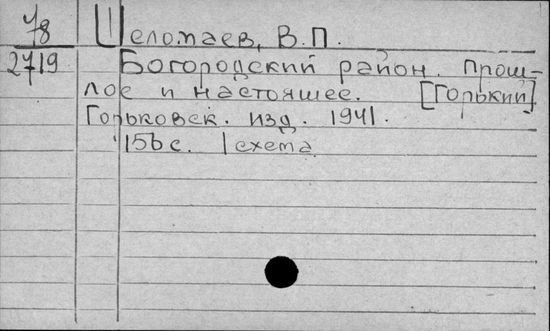 У8
Шеломаев, В.П.
2719
Богородский район. Прош-
лое и настоящее. [Горький]
Горьковск. изд. 1941.
156 с. 1 схема